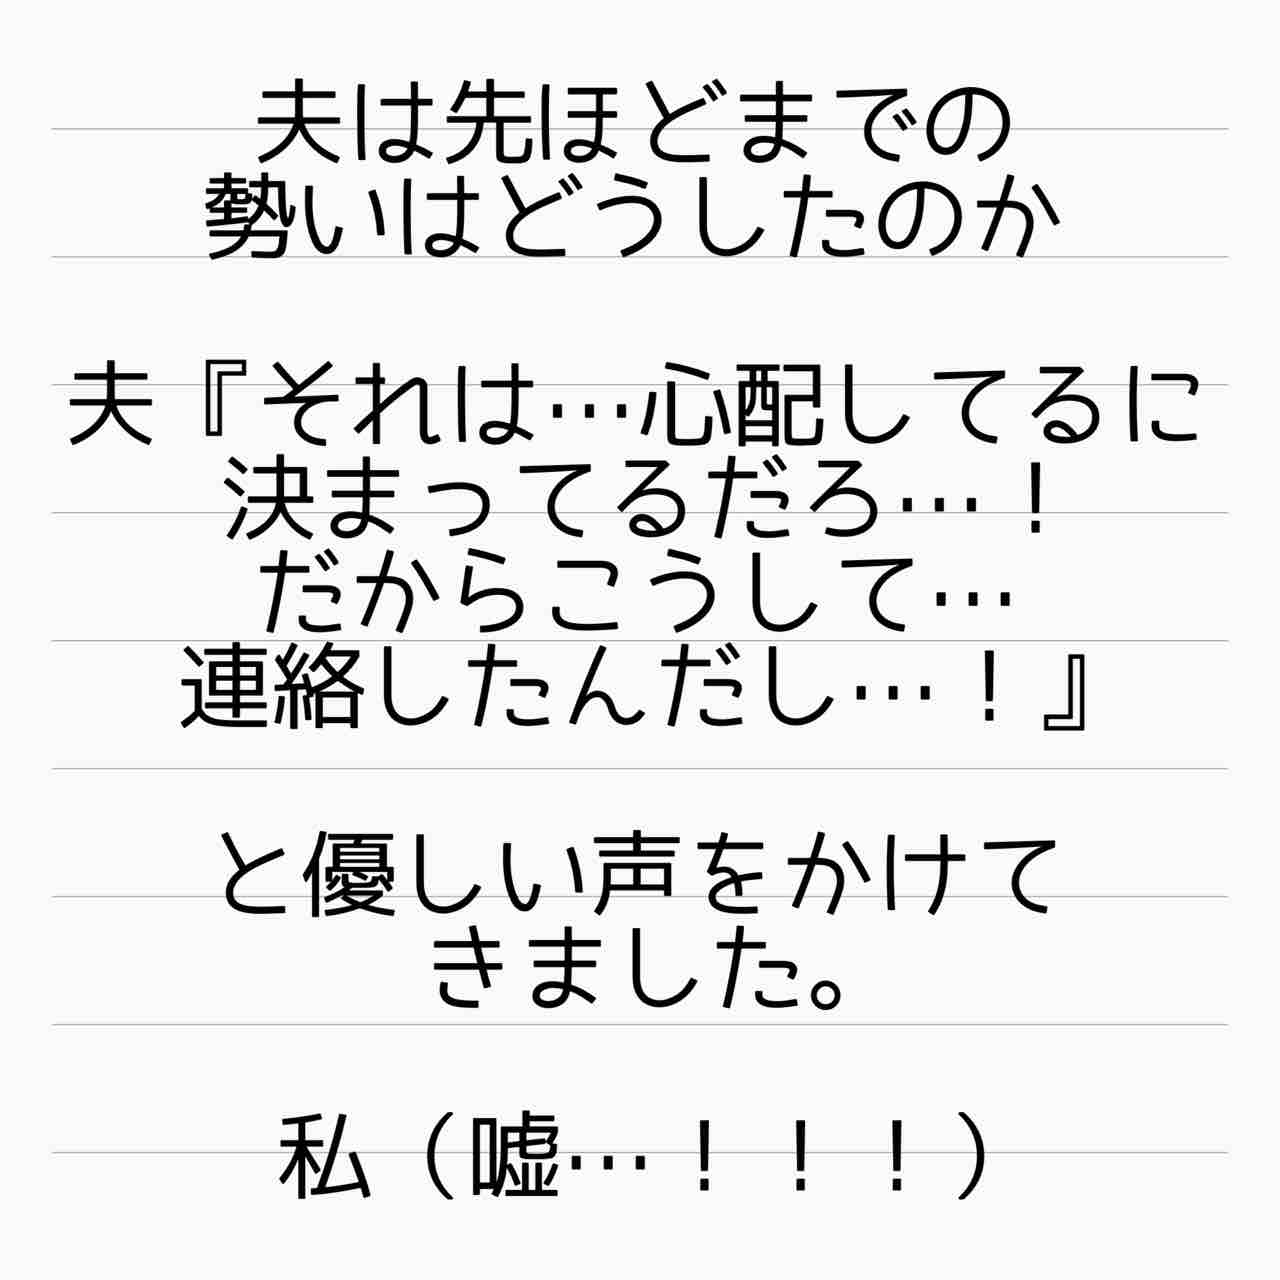 夫は先ほどまでの
勢いはどうしたのか
夫『それは…心配してるに
決まってるだろ…！
だからこうして…
連絡したんだし…！』
と優しい声をかけて
きました。
私（嘘…！！！）